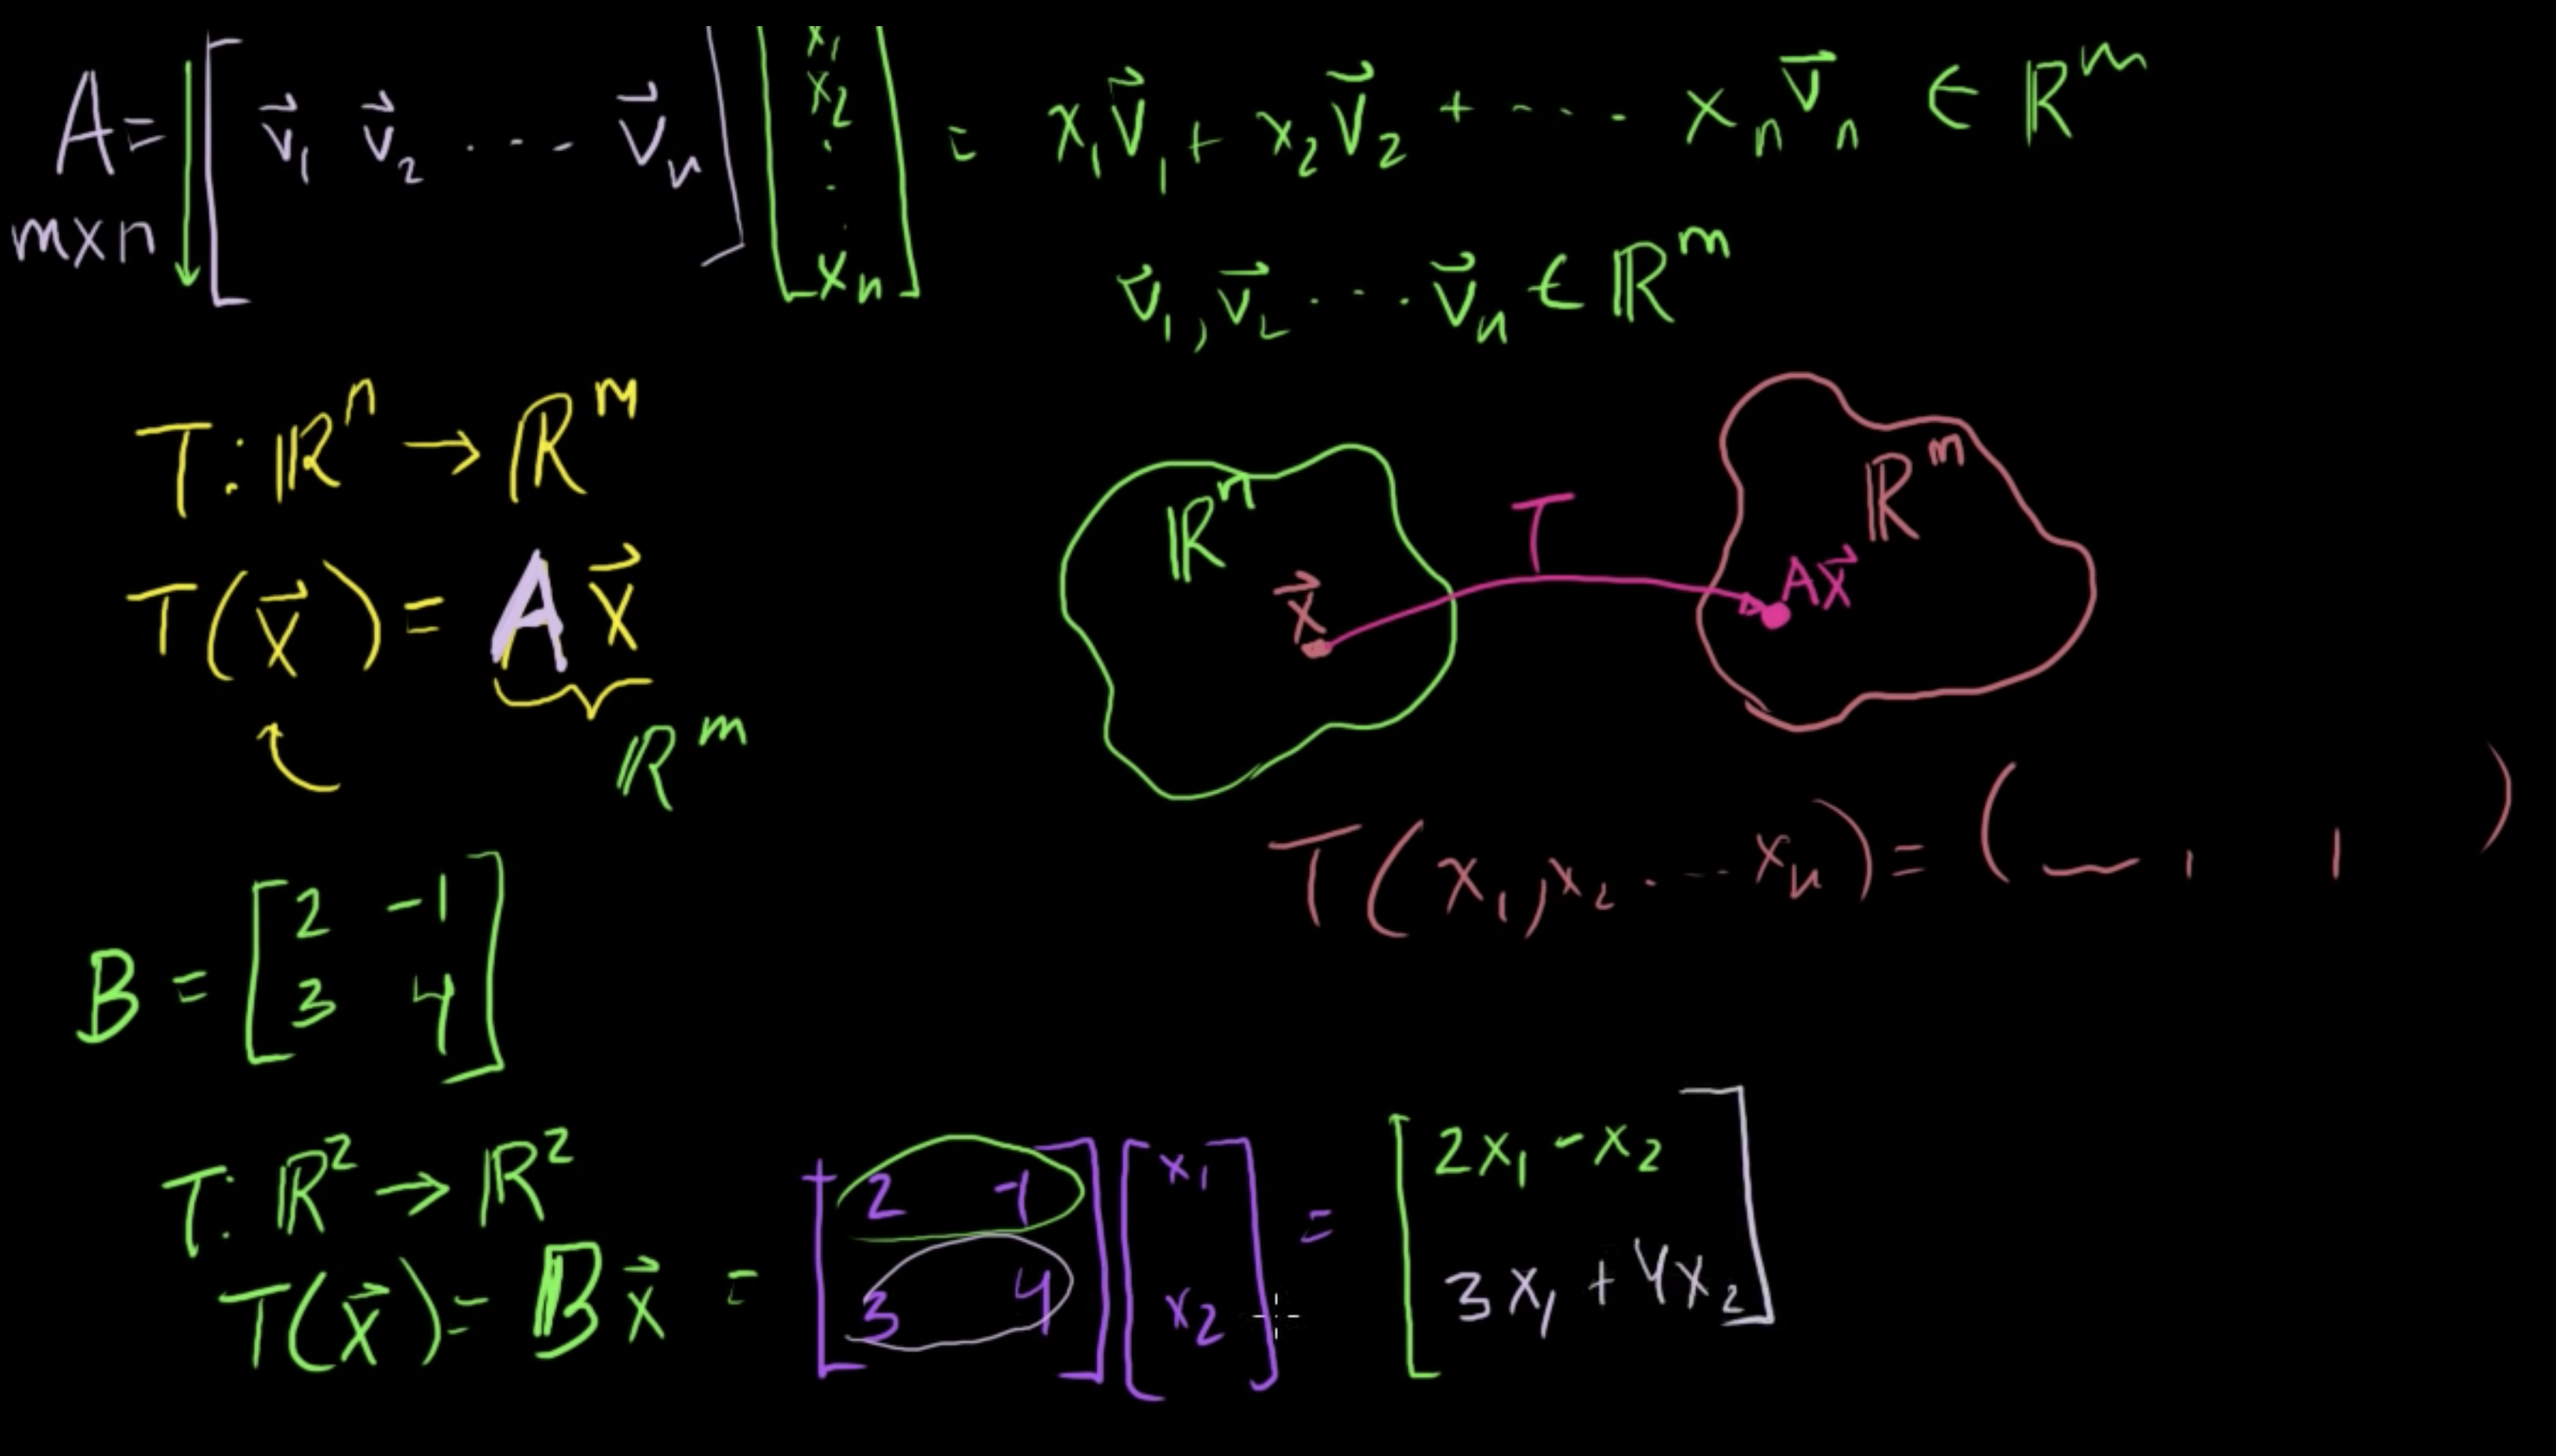 A = [ v⃗₁ v⃗₂ ... v⃗ₙ ] [ x₁ x₂ ... xₙ ] = x₁v⃗₁ + x₂v⃗₂ + ... xₙv⃗ₙ ∈ ℝᵐ
m×n
v⃗₁, v⃗₂ ... v⃗ₙ ∈ ℝᵐ
T: ℝⁿ → ℝᵐ
T(x⃗) = Ax⃗
ℝᵐ
ℝⁿ
x⃗
T
ℝᵐ
Ax⃗
T(x₁, x₂ ... xₙ) = ( _ , , )
B = [ 2 -1
3 4 ]
T: ℝ² → ℝ²
T(x⃗) = Bx⃗ = [ 2 -1 ] [ x₁ ] = [ 2x₁ - x₂ ]
[ 3 4 ] [ x₂ ] [ 3x₁ + 4x₂ ]